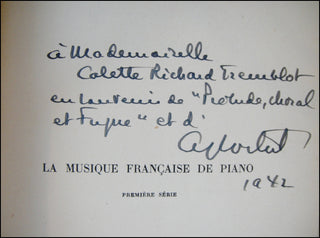 à Mademoiselle
Colette Richard Tremblot
en souvenir de "Prélude, choral
et Fugue" et d'
LA MUSIQUE FRANÇAISE DE PIANO
PREMIÈRE SÉRIE
1942